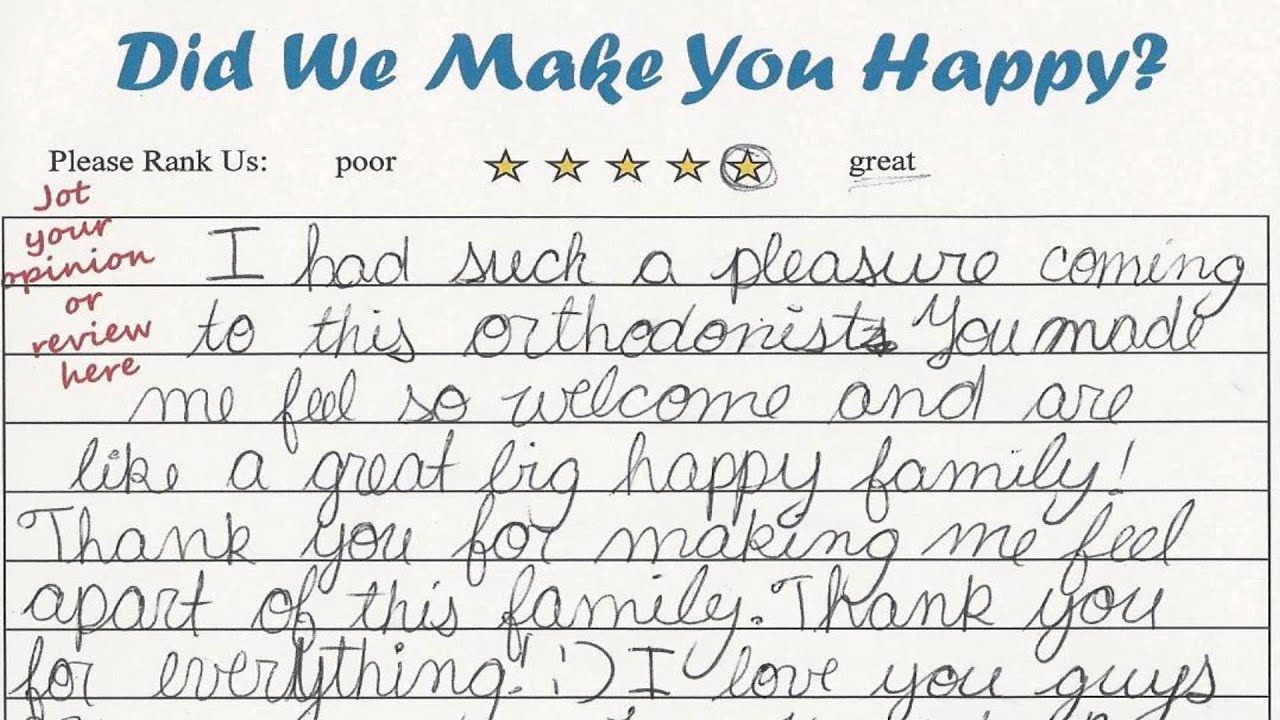 Did We Make You Happy?
Please Rank Us: poor great
Jot
your
opinion
or
review
here
I had such a pleasure coming
to this orthodonist. You made
me feel so welcome and are
like a great big happy family!
Thank you for making me feel
apart of this family. Thank you
for everything! :) I love you guys